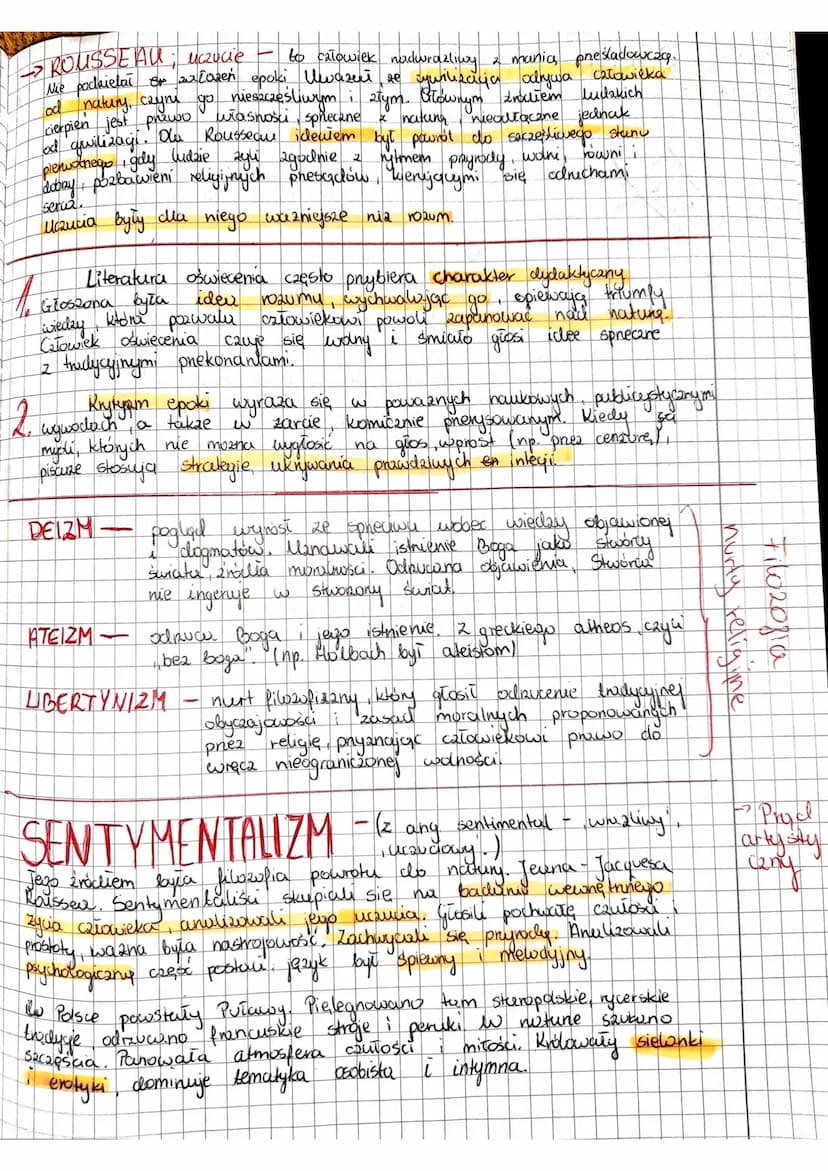 → ROUSSEAU; uczucie – to człowiek nadwrażliwy z manią prześladowczą.
Nie podzielał założeń epoki. Uważał, że cywilizacja odrywa człowieka
od natury, czyni go nieszczęśliwym i złym. Głównym źródłem ludzkich
cierpień jest prawo własności, sprzeczne z naturą, nieodłączne jednak
od cywilizacji. Dla Rousseau ideałem był powrót do szczęśliwego stanu
pierwotnego, gdy ludzie żyli zgodnie z rytmem przyrody, wolni, równi i
dobrzy, pozbawieni religijnych przesądów, kierującymi się odruchami
serca.
Uczucia były dla niego ważniejsze niż rozum.
1. Literatura oświecenia często przybiera charakter dydaktyczny.
Głoszona była idea rozumu, wychwalając go, opiewają triumfy
wiedzy, która pozwala człowiekowi powoli zapanować nad naturą.
Człowiek oświecenia czuje się wolny i śmiało głosi idee sprzeczne
z tradycyjnymi przekonaniami.
2. Krytycyzm epoki wyraża się w poważnych naukowych, publicystycznymi
wywodach, a także w żarcie, komicznie przerysowanym. Kiedy są
myśli, których nie można wygłosić na głos, wprost (np. przez cenzurę),
pisarze stosują strategię ukrywania prawdziwych intecji.
DEIZM — pogląd wyrósł ze sprzeciwu wobec wiedzy objawionej
i dogmatów. Uznawali istnienie Boga jako stwórcy
świata, źródła moralności. Odrzucana objawienia, Stwórca
nie ingeruje w stworzony świat.
ATEIZM — odrzuca Boga i jego istnienie. Z greckiego atheos, czyli
„bez boga". (np. Holbach był ateistom)
LIBERTYNIZM – nurt filozofizzny, który głosił odrzucenie tradycyjnej
obyczajowości i zasad moralnych proponowanych
przez religię, przyznając człowiekowi prawo do
wręcz nieograniczonej wolności.
Filozofia
nurty religijne
SENTYMENTALIZM – (z ang sentimental – ‚wrażliwy',
‚uczuciowy'.)
→ Prąd
artysty
czny
Jego źródłem była filozofia powrotu do natury. Jeana-Jacquesa
Rousseu. Sentymentaliści skupiali się na badaniu wewnętrznego
życia człowieka, analizowali jego uczucia. Głosili pochwałę czułości i
prostoty, ważna była nastrojowość. Zachwycali się przyrodą. Analizowali
psychologiczną część postaci. język był śpiewny i melodyjny.
W Polsce powstały Puławy. Pielęgnowano tam staropolskie, rycerskie
tradycje, odrzucano francuskie stroje i peruki. W naturze szukano
szczęścia. Panowała atmosfera czułości i miłości. Królowały sielanki
i erotyki, dominuje tematyka osobista i intymna.